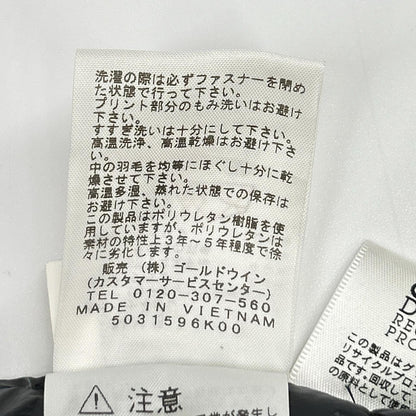 洗濯の際は必ずファスナーを閉め
た状態で行って下さい。
プリント部分のもみ洗いはお避け
下さい。
すすぎ洗いは十分にして下さい。
高温洗浄、高温乾燥はお避け下さ
い。
中の羽毛を均等にほぐし十分に乾
燥させて下さい。
高温多湿、蒸れた状態での保存は
お避け下さい。
この製品はポリウレタン樹脂を使
用していますが、ポリウレタンは
素材の特性上3年~5年程度で徐
々に劣化します。
販売 (株) ゴールドウイン
(カスタマーサービスセンター)
TEL 0120-307-560
MADE IN VIETNAM
5031596K00
⚠注意
この製品はケ
リサイクルプロ
品です。回収し
の原料として使